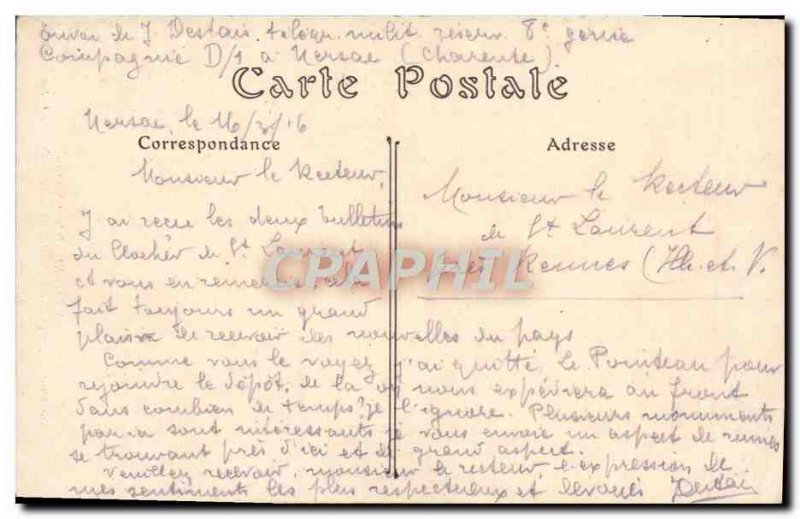 Envoi de J. Destais télégr. milit. réserv. 8e génie
Compagnie D/1 à Nersac (Charente).
Carte Postale
Nersac, le 16/3/16
Correspondance
Monsieur le Recteur,
J'ai reçu les deux bulletins
du Clocher de St Laurent
et vous en remercie. Cela
fait toujours un grand
plaisir de recevoir des nouvelles du pays
Comme vous le voyez j'ai quitté le Pointeau pour
rejoindre le dépôt, de là on nous expédiera au front
dans combien de temps? je l'ignore. Plusieurs monuments
par ici sont intéressants je vous envoie un aspect de ruines
se trouvant près d'ici et de grand aspect.
Veuillez recevoir, monsieur le recteur, l'expression de
mes sentiments les plus respectueux et dévoués
Adresse
Monsieur le Recteur
de St Laurent
près Rennes (Ille-et-V.
CPAPHIL